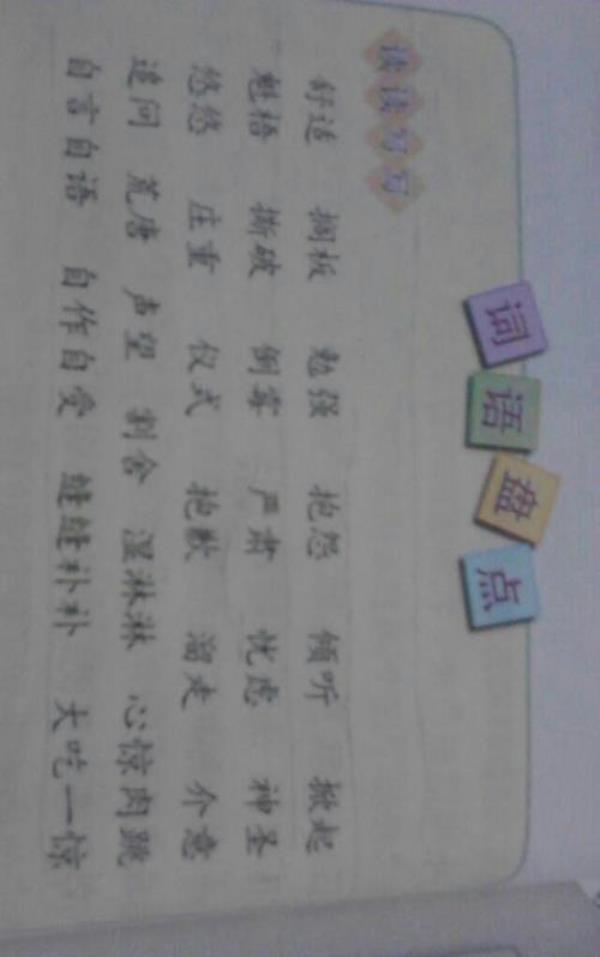 词语盘点
读读写写
舒适 搁板 勉强 抱怨 倾听 掀起
魁梧 撕破 倒霉 严肃 忧虑 神圣
悠悠 庄重 仪式 抱歉 溜走 介意
追问 荒唐 声望 割舍 湿淋淋 心惊肉跳
自言自语 自作自受 缝缝补补 大吃一惊